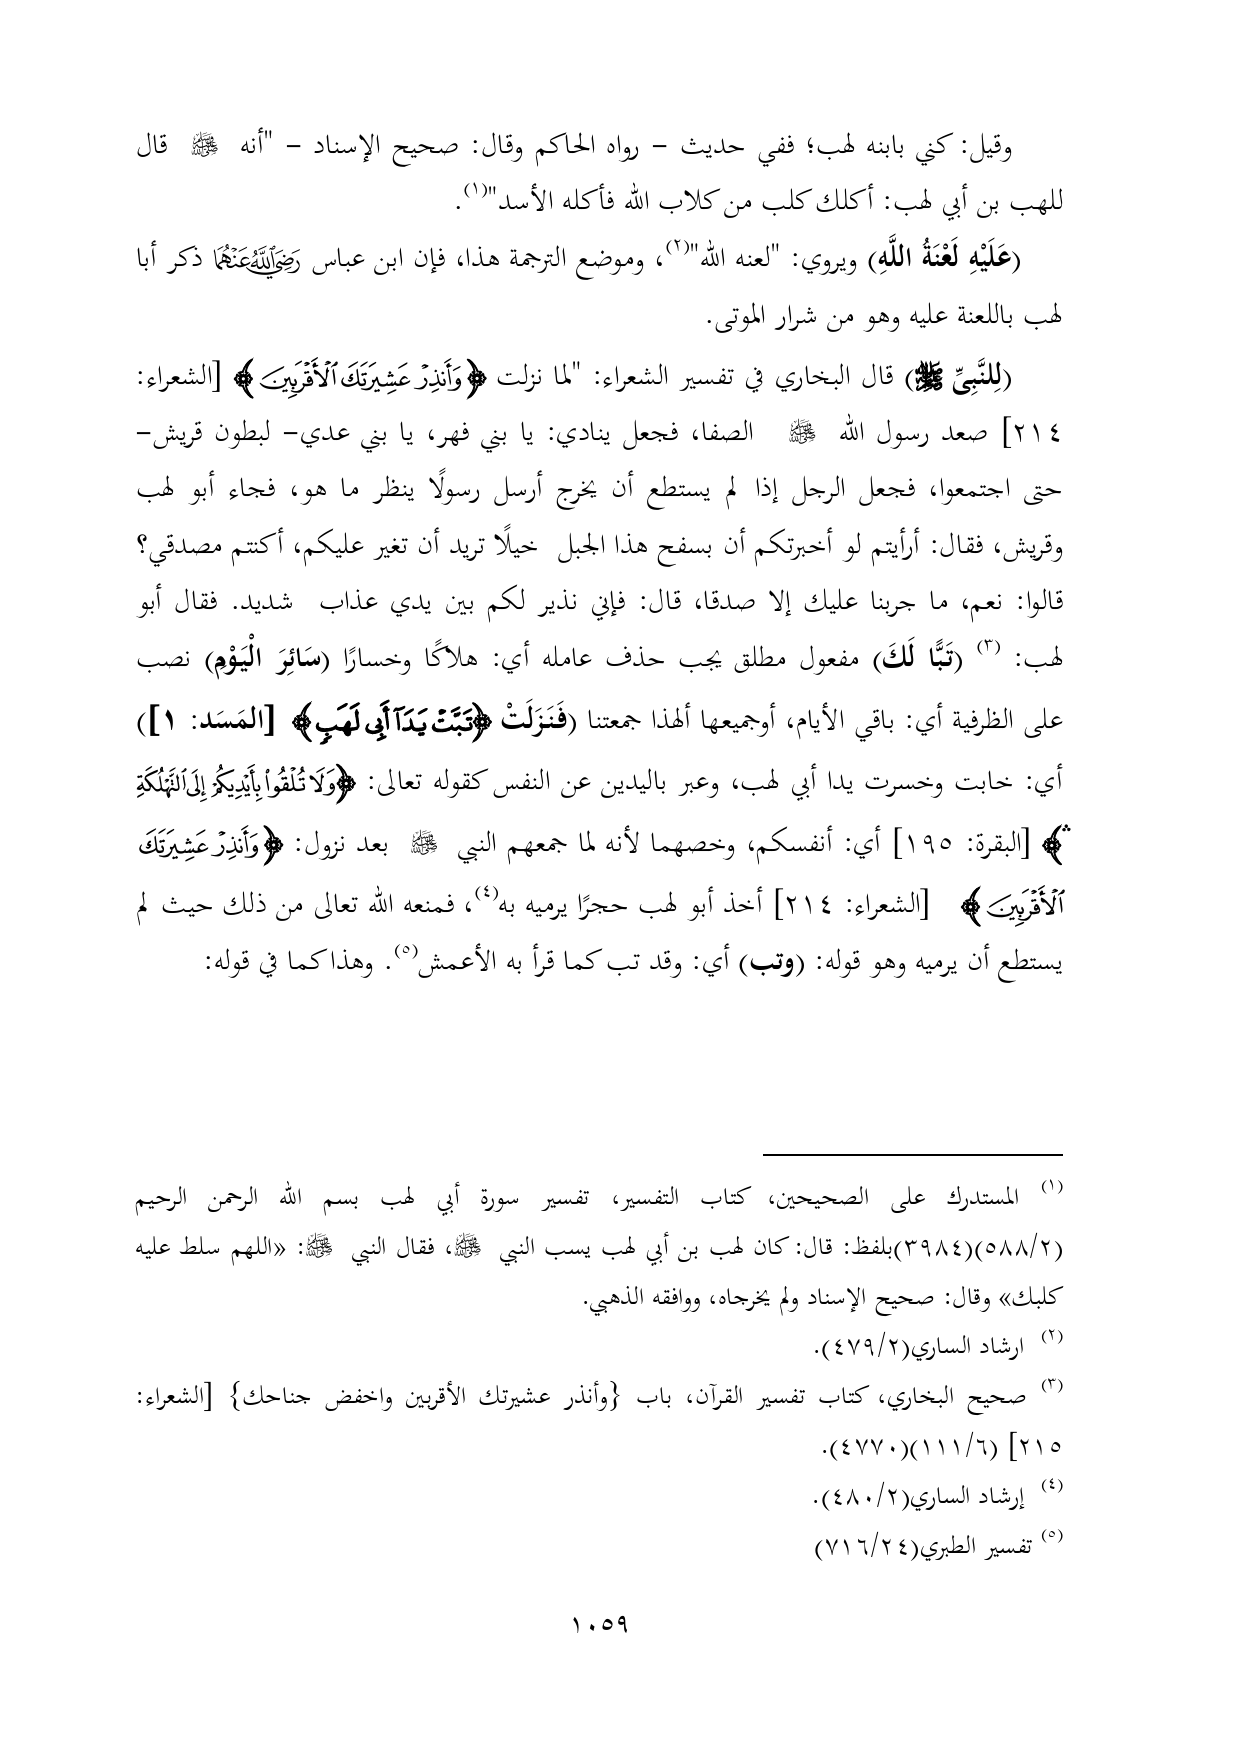 وقيل: كني بابنه لهب؛ ففي حديث – رواه الحاكم وقال: صحيح الإسناد – "أنه ﷺ قال
للهب بن أبي لهب: أكلك كلب من كلاب الله فأكله الأسد"(١).
(عَلَيْهِ لَعْنَةُ اللَّهِ) ويروي: "لعنه الله"(٢)، وموضع الترجمة هذا، فإن ابن عباس رَضِيَ اللَّهُ عَنْهُمَا ذكر أبا
لهب باللعنة عليه وهو من شرار الموتى.
(لِلنَّبِيِّ ﷺ) قال البخاري في تفسير الشعراء: "لما نزلت ﴿وَأَنذِرْ عَشِيرَتَكَ ٱلْأَقْرَبِينَ﴾ [الشعراء:
٢١٤] صعد رسول الله ﷺ الصفا، فجعل ينادي: يا بني فهر، يا بني عدي– لبطون قريش–
حتى اجتمعوا، فجعل الرجل إذا لم يستطع أن يخرج أرسل رسولًا ينظر ما هو، فجاء أبو لهب
وقريش، فقال: أرأيتم لو أخبرتكم أن بسفح هذا الجبل خيلًا تريد أن تغير عليكم، أكنتم مصدقي؟
قالوا: نعم، ما جربنا عليك إلا صدقا، قال: فإني نذير لكم بين يدي عذاب شديد. فقال أبو
لهب: (٣) (تَبًّا لَكَ) مفعول مطلق يجب حذف عامله أي: هلاكًا وخسارًا (سَائِرَ الْيَوْمِ) نصب
على الظرفية أي: باقي الأيام، أوجميعها ألهذا جمعتنا (فَنَزَلَتْ ﴿تَبَّتْ يَدَآ أَبِى لَهَبٍ﴾ [المَسَد: ١])
أي: خابت وخسرت يدا أبي لهب، وعبر باليدين عن النفس كقوله تعالى: ﴿وَلَا تُلْقُوا۟ بِأَيْدِيكُمْ إِلَى ٱلتَّهْلُكَةِ
ۛ﴾ [البقرة: ١٩٥] أي: أنفسكم، وخصهما لأنه لما جمعهم النبي ﷺ بعد نزول: ﴿وَأَنذِرْ عَشِيرَتَكَ
ٱلْأَقْرَبِينَ﴾ [الشعراء: ٢١٤] أخذ أبو لهب حجرًا يرميه به(٤)، فمنعه الله تعالى من ذلك حيث لم
يستطع أن يرميه وهو قوله: (وتب) أي: وقد تب كما قرأ به الأعمش(٥). وهذا كما في قوله:
(١) المستدرك على الصحيحين، كتاب التفسير، تفسير سورة أبي لهب بسم الله الرحمن الرحيم
(٥٨٨/٢)(٣٩٨٤)بلفظ: قال: كان لهب بن أبي لهب يسب النبي ﷺ، فقال النبي ﷺ: «اللهم سلط عليه
كلبك» وقال: صحيح الإسناد ولم يخرجاه، ووافقه الذهبي.
(٢) ارشاد الساري(٤٧٩/٢).
(٣) صحيح البخاري، كتاب تفسير القرآن، باب {وأنذر عشيرتك الأقربين واخفض جناحك} [الشعراء:
٢١٥] (١١١/٦)(٤٧٧٠).
(٤) إرشاد الساري(٤٨٠/٢).
(٥) تفسير الطبري(٧١٦/٢٤)
١٠٥٩